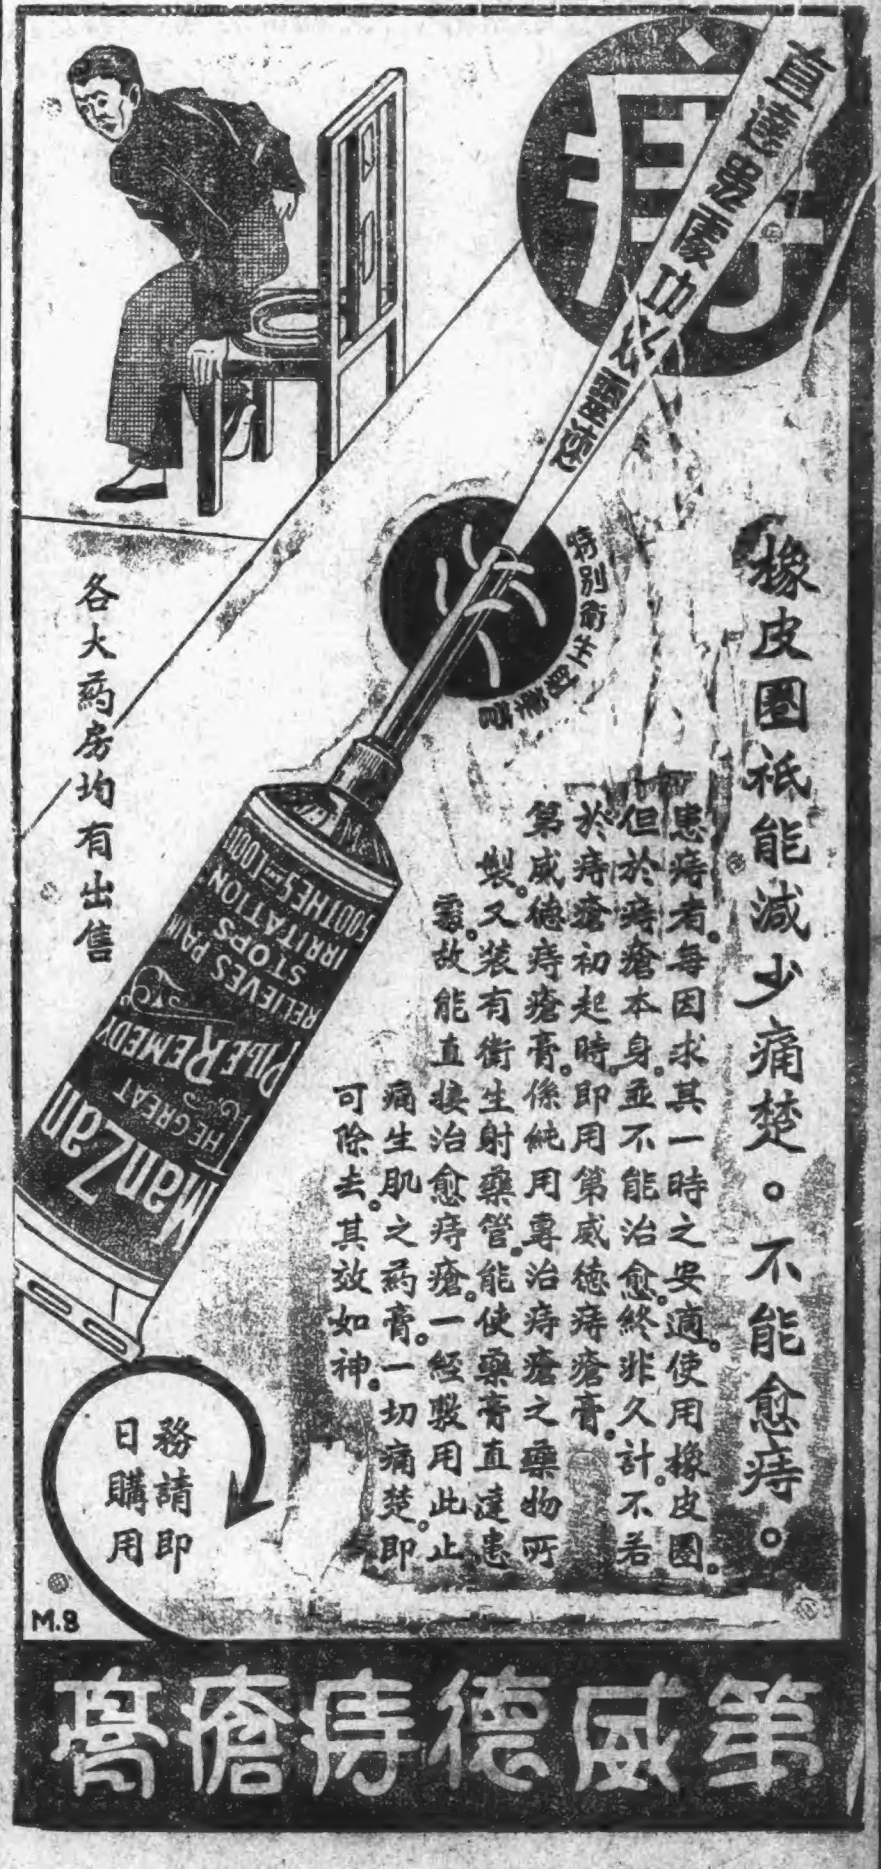 痔
直達患處功效靈速
特別衛生射藥管
橡皮圈祇能減少痛楚。不能愈痔。
患痔者。每因求其一時之安適。使用橡皮圈。
但於痔瘡本身。並不能治愈。終非久計。不若
於痔瘡初起時。即用第威德痔瘡膏。
第威德痔瘡膏。係純用專治痔瘡之藥物所
製。又裝有衛生射藥管。能使藥膏直達患
處。故能直接治愈痔瘡。一經敷用此止
痛生肌之药膏。一切痛楚。即
可除去。其效如神。
各大药房均有出售
ManZan
THE GREAT
PILE REMEDY
RELIEVES PAIN
STOPS
IRRITATION
務請即
日購用
M.8
第威德痔瘡膏